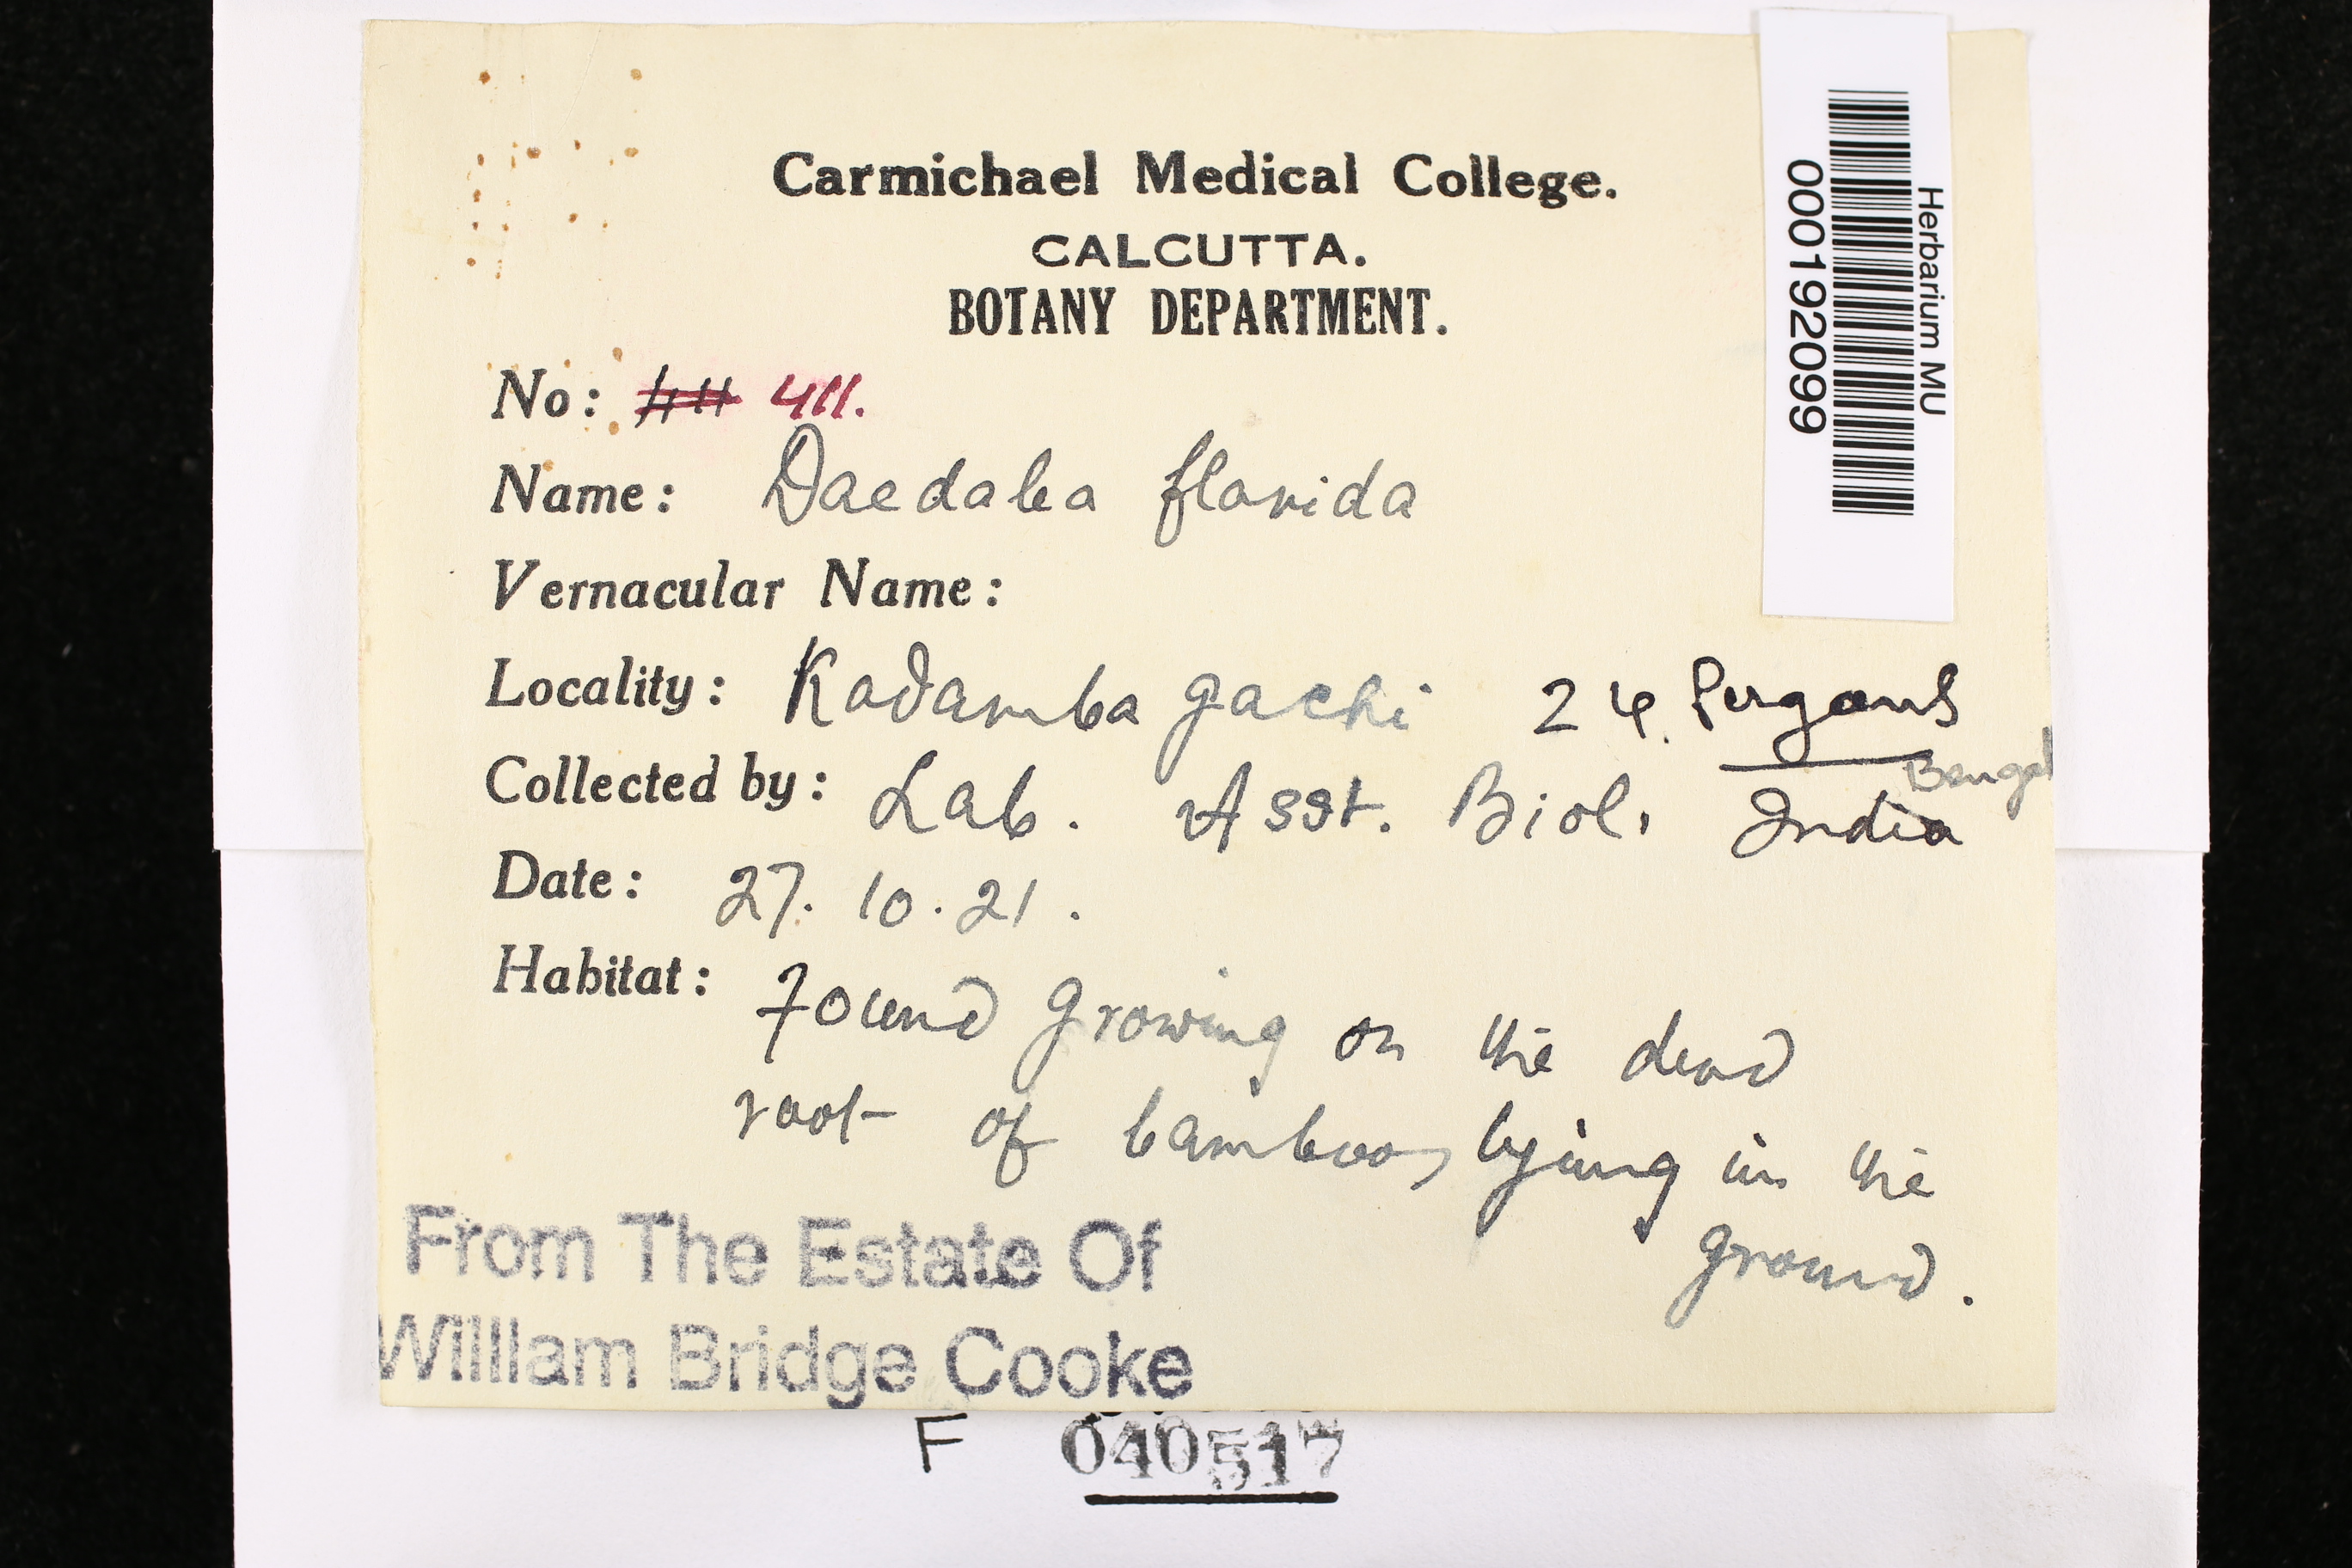 Carmichael Medical College.
CALCUTTA.
BOTANY DEPARTMENT.
No: 411.
Name: Daedalea flavida
Vernacular Name:
Locality: Kadamba gachi 24. Pergans
Bengal
Collected by: Lab. Asst. Biol. India
Date: 27. 10. 21.
Habitat: Found growing on the dead
root of bamboo, lying in the
ground.
From The Estate Of
William Bridge Cooke
F 040517
Herbarium MU
000192099